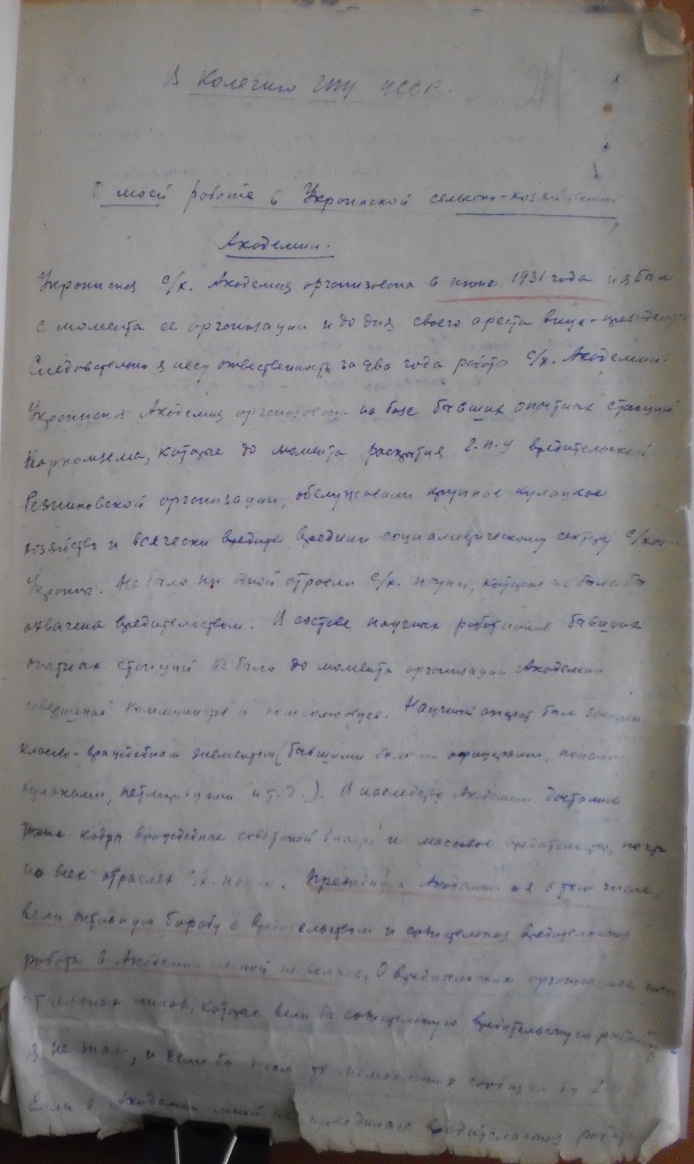 В Колегию ГПУ УССР.
О моей работе в Украинской сельско-хозяйственной
Академии.
Украинская с/х. Академия организована в июне 1931 года и я был
с момента ее организации и до дня своего ареста вице-президентом
Следовательно я несу ответственность за два года работы с/х. Академии.
Украинская Академия организована на базе бывших опытных станций
Наркомзема, которые до момента раскрытия Г.П.У вредительской
Резниковской организации, обслуживали крупное кулацкое
хозяйство и всячески вредили социалистическому сектору
Украины. Не было ни одной отрасли с/х. науки, которая не была бы
охвачена вредительством. В составе научных работников бывших
опытных станций не было до момента организации Академии
коммунистов и комсомольцев. Научный аппарат был
классово-враждебным элементом (бывшими белыми офицерами, попами
кулаками, петлюровцами и т.д.). В наследство Академии достались
кадры враждебные советской власти и массовое вредительство,
по всех отраслях с/х. науки. Президиум Академии и я в том числе,
вели активную борьбу с вредительством и сознательная вредительская
работа в Академии мной не велась. О вредительских организациях или
отдельных лицах, которые вели бы сознательную вредительскую работу
я не знал, и если бы знал то немедленно сообщил бы
Если в Академии мной не проводилась вредительская работа